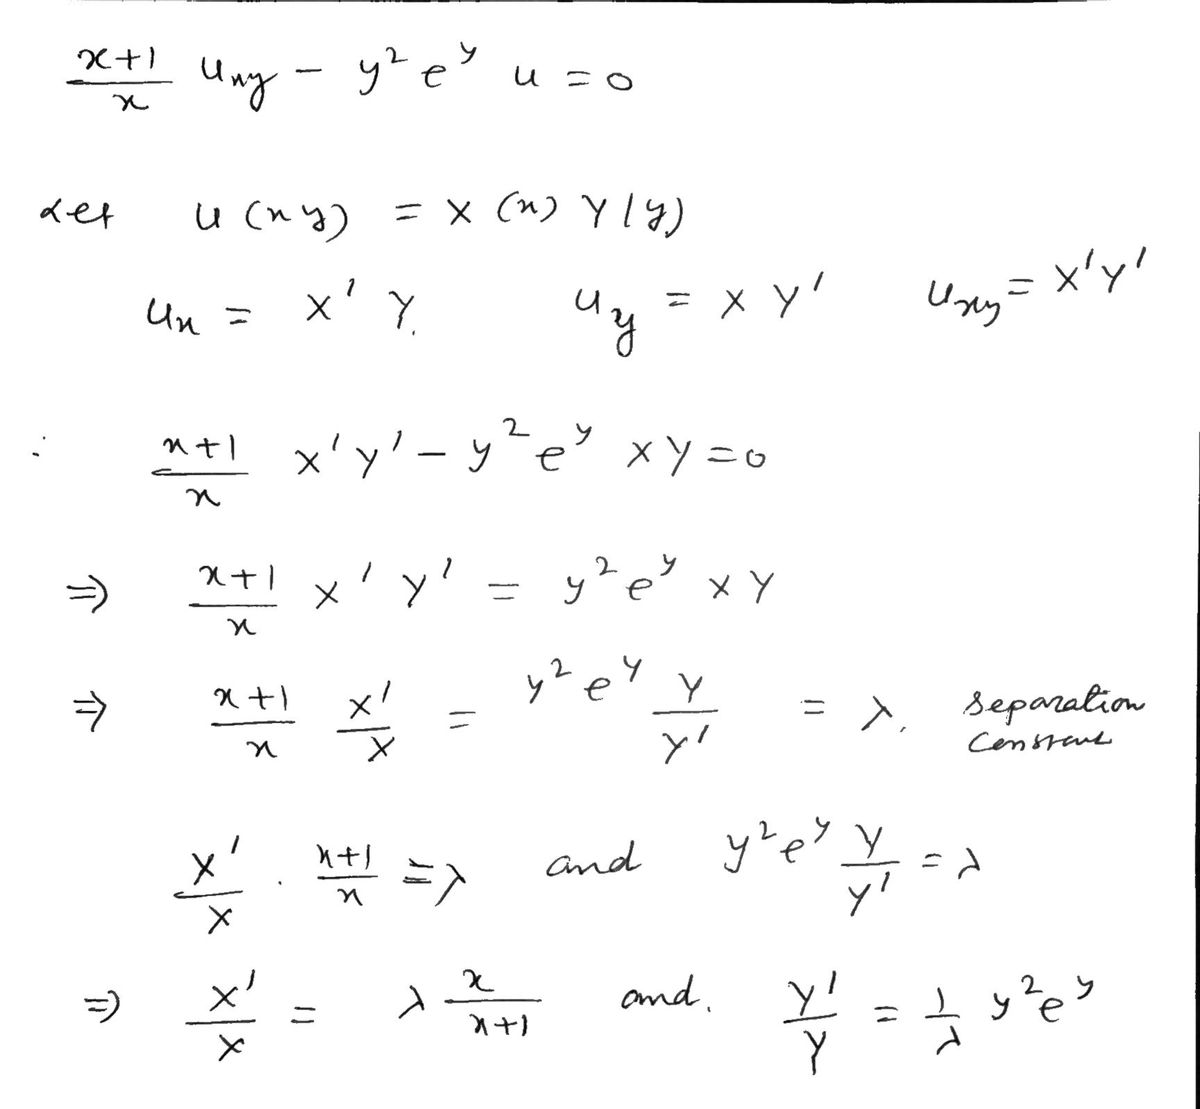 (x+1)/x u_xy - y² e^y u = 0
Let u(xy) = X(x) Y(y)
u_x = X' Y. u_y = X Y' u_xy = X'Y'
∴ (x+1)/x X'Y' - y² e^y XY = 0
⇒ (x+1)/x X' Y' = y² e^y XY
⇒ (x+1)/x X'/X = y² e^y Y/Y' = λ. separation
constant
X'/X . (x+1)/x = λ and y² e^y Y/Y' = λ
⇒ X'/X = λ x/(x+1) and. Y'/Y = 1/λ y² e^y